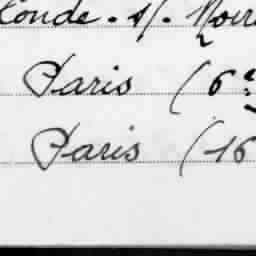 Conde. s/. Noire
Paris (6e
Paris (16